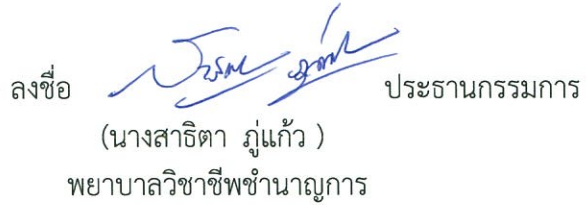 ลงชื่อ ประธานกรรมการ
(นางสาธิตา ภู่แก้ว )
พยาบาลวิชาชีพชำนาญการ